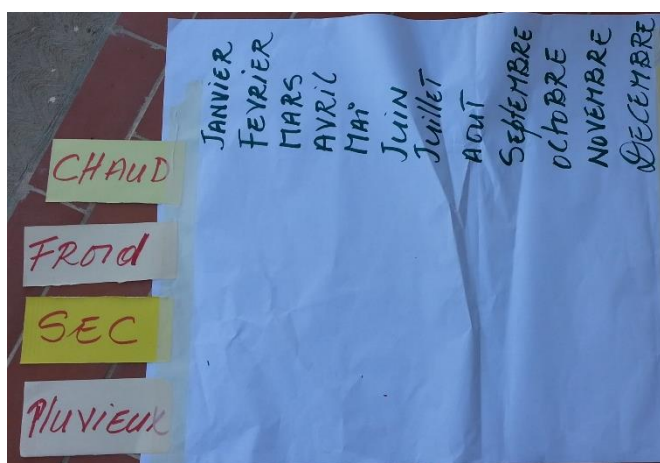 JANVIER
FEVRIER
MARS
AVRIL
MAÏ
JUIN
JUILLET
AOUT
SEPTEMBRE
OCTOBRE
NOVEMBRE
DECEMBRE
CHAUD
FROID
SEC
PLUVIEUX